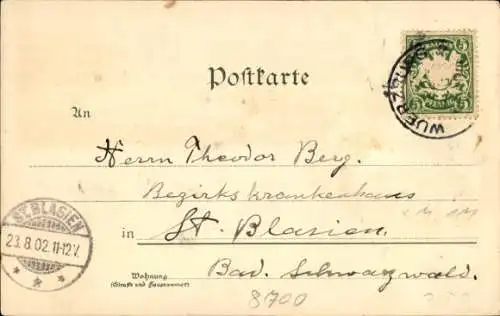 5 5
PFENNIG
5 5
WUERZBURG
Postkarte
An
Herrn Theodor Berg.
Bezirkskrankenhaus
in St. Blasien.
ST. BLASIEN
23.8.02.11-12V.
Wohnung
(Straße und Hausnummer)
Bad. Schwarzwald.
8700